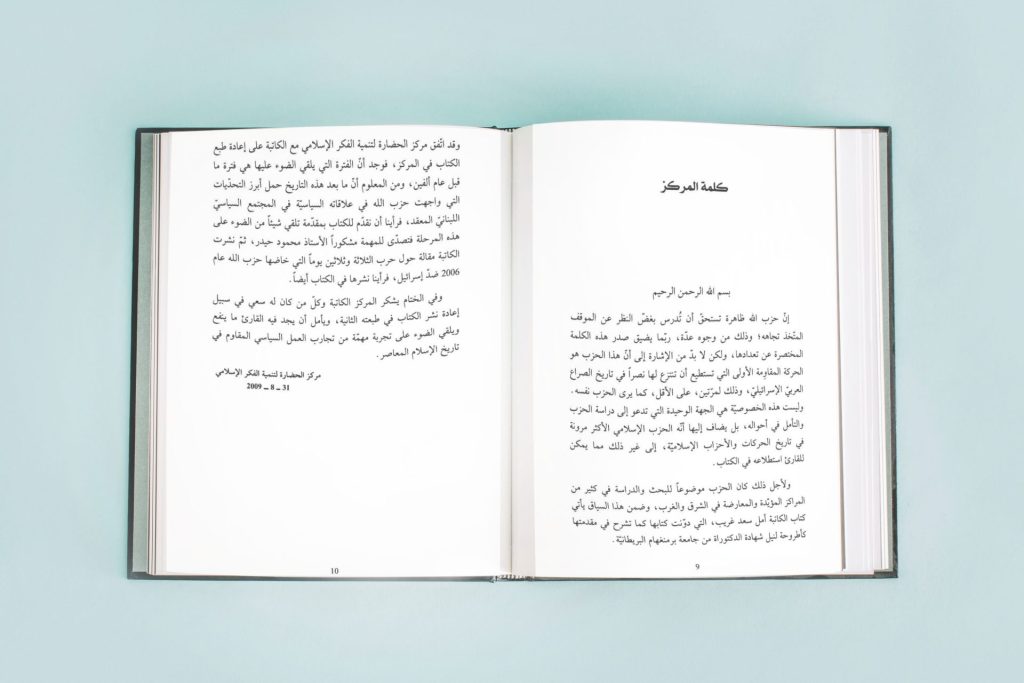 كلمة المركز
بسم الله الرحمن الرحيم
إنّ حزب الله ظاهرة تستحقّ أن تُدرس بغضّ النظر عن الموقف
المتّخذ تجاهه؛ وذلك من وجوه عدّة، ربّما يضيق صدر هذه الكلمة
المختصرة عن تعدادها، ولكن لا بدّ من الإشارة إلى أنّ هذا الحزب هو
الحركة المقاوِمة الأولى التي تستطيع أن تنتزع لها نصراً في تاريخ الصراع
العربيّ الإسرائيليّ، وذلك لمرّتين، على الأقل، كما يرى الحزب نفسه.
وليست هذه الخصوصيّة هي الجهة الوحيدة التي تدعو إلى دراسة الحزب
والتأمل في أحواله، بل يضاف إليها أنّه الحزب الإسلامي الأكثر مرونة
في تاريخ الحركات والأحزاب الإسلاميّة، إلى غير ذلك مما يمكن
للقارئ استطلاعه في الكتاب.
ولأجل ذلك كان الحزب موضوعاً للبحث والدراسة في كثير من
المراكز المؤيّدة والمعارضة في الشرق والغرب، وضمن هذا السياق يأتي
كتاب الكاتبة أمل سعد غريب، التي دوّنت كتابها كما تشرح في مقدمتها
كأطروحة لنيل شهادة الدكتوراة من جامعة برمنغهام البريطانيّة.
9
وقد اتّفق مركز الحضارة لتنمية الفكر الإسلامي مع الكاتبة على إعادة طبع
الكتاب في المركز، فوجد أنّ الفترة التي يلقي الضوء عليها هي فترة ما
قبل عام ألفين، ومن المعلوم أنّ ما بعد هذه التاريخ حمل أبرز التحدّيات
التي واجهت حزب الله في علاقاته السياسيّة في المجتمع السياسيّ
اللبنانيّ المعقد، فرأينا أن نقدّم للكتاب بمقدّمة تلقي شيئاً من الضوء على
هذه المرحلة فتصدّى للمهمة مشكوراً الأستاذ محمود حيدر، ثمّ نشرت
الكاتبة مقالة حول حرب الثلاثة وثلاثين يوماً التي خاضها حزب الله عام
2006 ضدّ إسرائيل، فرأينا نشرها في الكتاب أيضاً.
وفي الختام يشكر المركز الكاتبة وكلّ من كان له سعي في سبيل
إعادة نشر الكتاب في طبعته الثانية، ويأمل أن يجد فيه القارئ ما ينفع
ويلقي الضوء على تجربة مهمّة من تجارب العمل السياسي المقاوم في
تاريخ الإسلام المعاصر.
مركز الحضارة لتنمية الفكر الإسلامي
31 ــ 8 ــ 2009
10